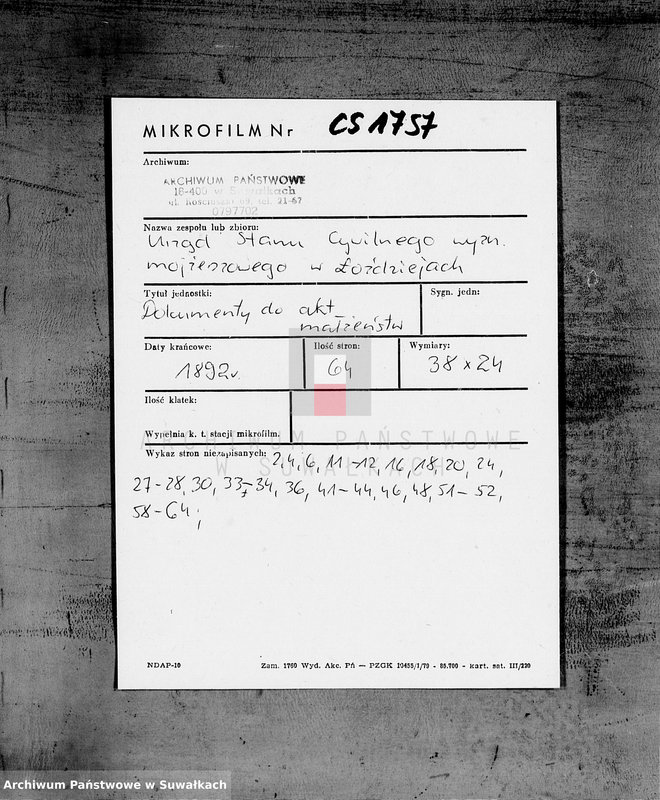 MIKROFILM Nr CS 1757
Archiwum:
ARCHIWUM PAŃSTWOWE
16-400 w Suwałkach
ul. Kościuszki 69, tel. 21-67
0797702
Nazwa zespołu lub zbioru:
Urząd Stanu Cywilnego wyzn.
mojżeszowego w Łoździejach
Tytuł jednostki:
Sygn. jedn:
Dokumenty do akt
małżeństw
Daty krańcowe:
Ilość stron:
Wymiary:
1892r.
64
38 x 24
Ilość klatek:
Wypełnia k. t. stacji mikrofilm.
ARCHIWUM PAŃSTWOWE
W SUWAŁKACH
Wykaz stron niezapisanych: 2, 4, 6, 11-12, 16, 18, 20, 24,
27-28, 30, 33-34, 36, 41-44, 46, 48, 51-52,
58-64;
NDAP-10
Zam. 1760 Wyd. Akc. Pń — PZGK 10455/1/79 - 85.700 - kart. sat. III/220
Archiwum Państwowe w Suwałkach